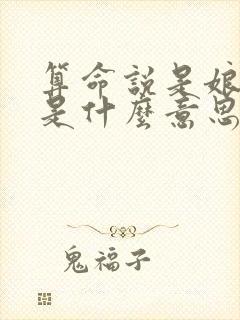 算命說是娘
是什麼意思
鬼福子